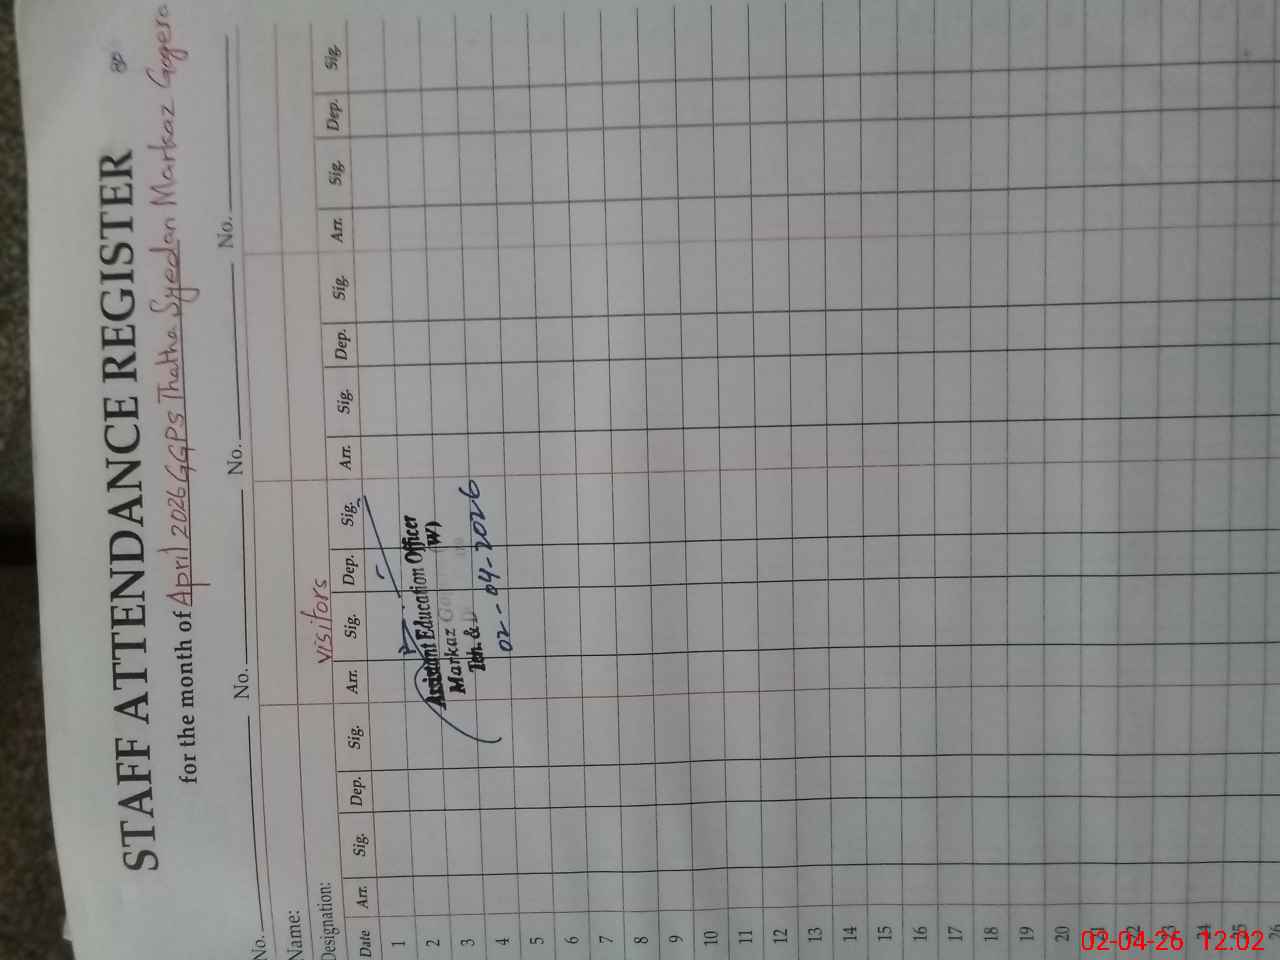 80
STAFF ATTENDANCE REGISTER
for the month of April 2026 GGPS Thatha Syedan Markaz Gogera
No. No. No. No.
Name:
Designation: visitors
Date Arr. Sig. Dep. Sig. Arr. Sig. Dep. Sig. Arr. Sig. Dep. Sig. Arr. Sig. Dep. Sig.
1
2 Assistant Education Officer
(W)
3 Markaz
Teh. &
4 02-04-2026
5
6
7
8
9
10
11
12
13
14
15
16
17
18
19
20
21
22
23
24
25
26
02-04-26 12:02